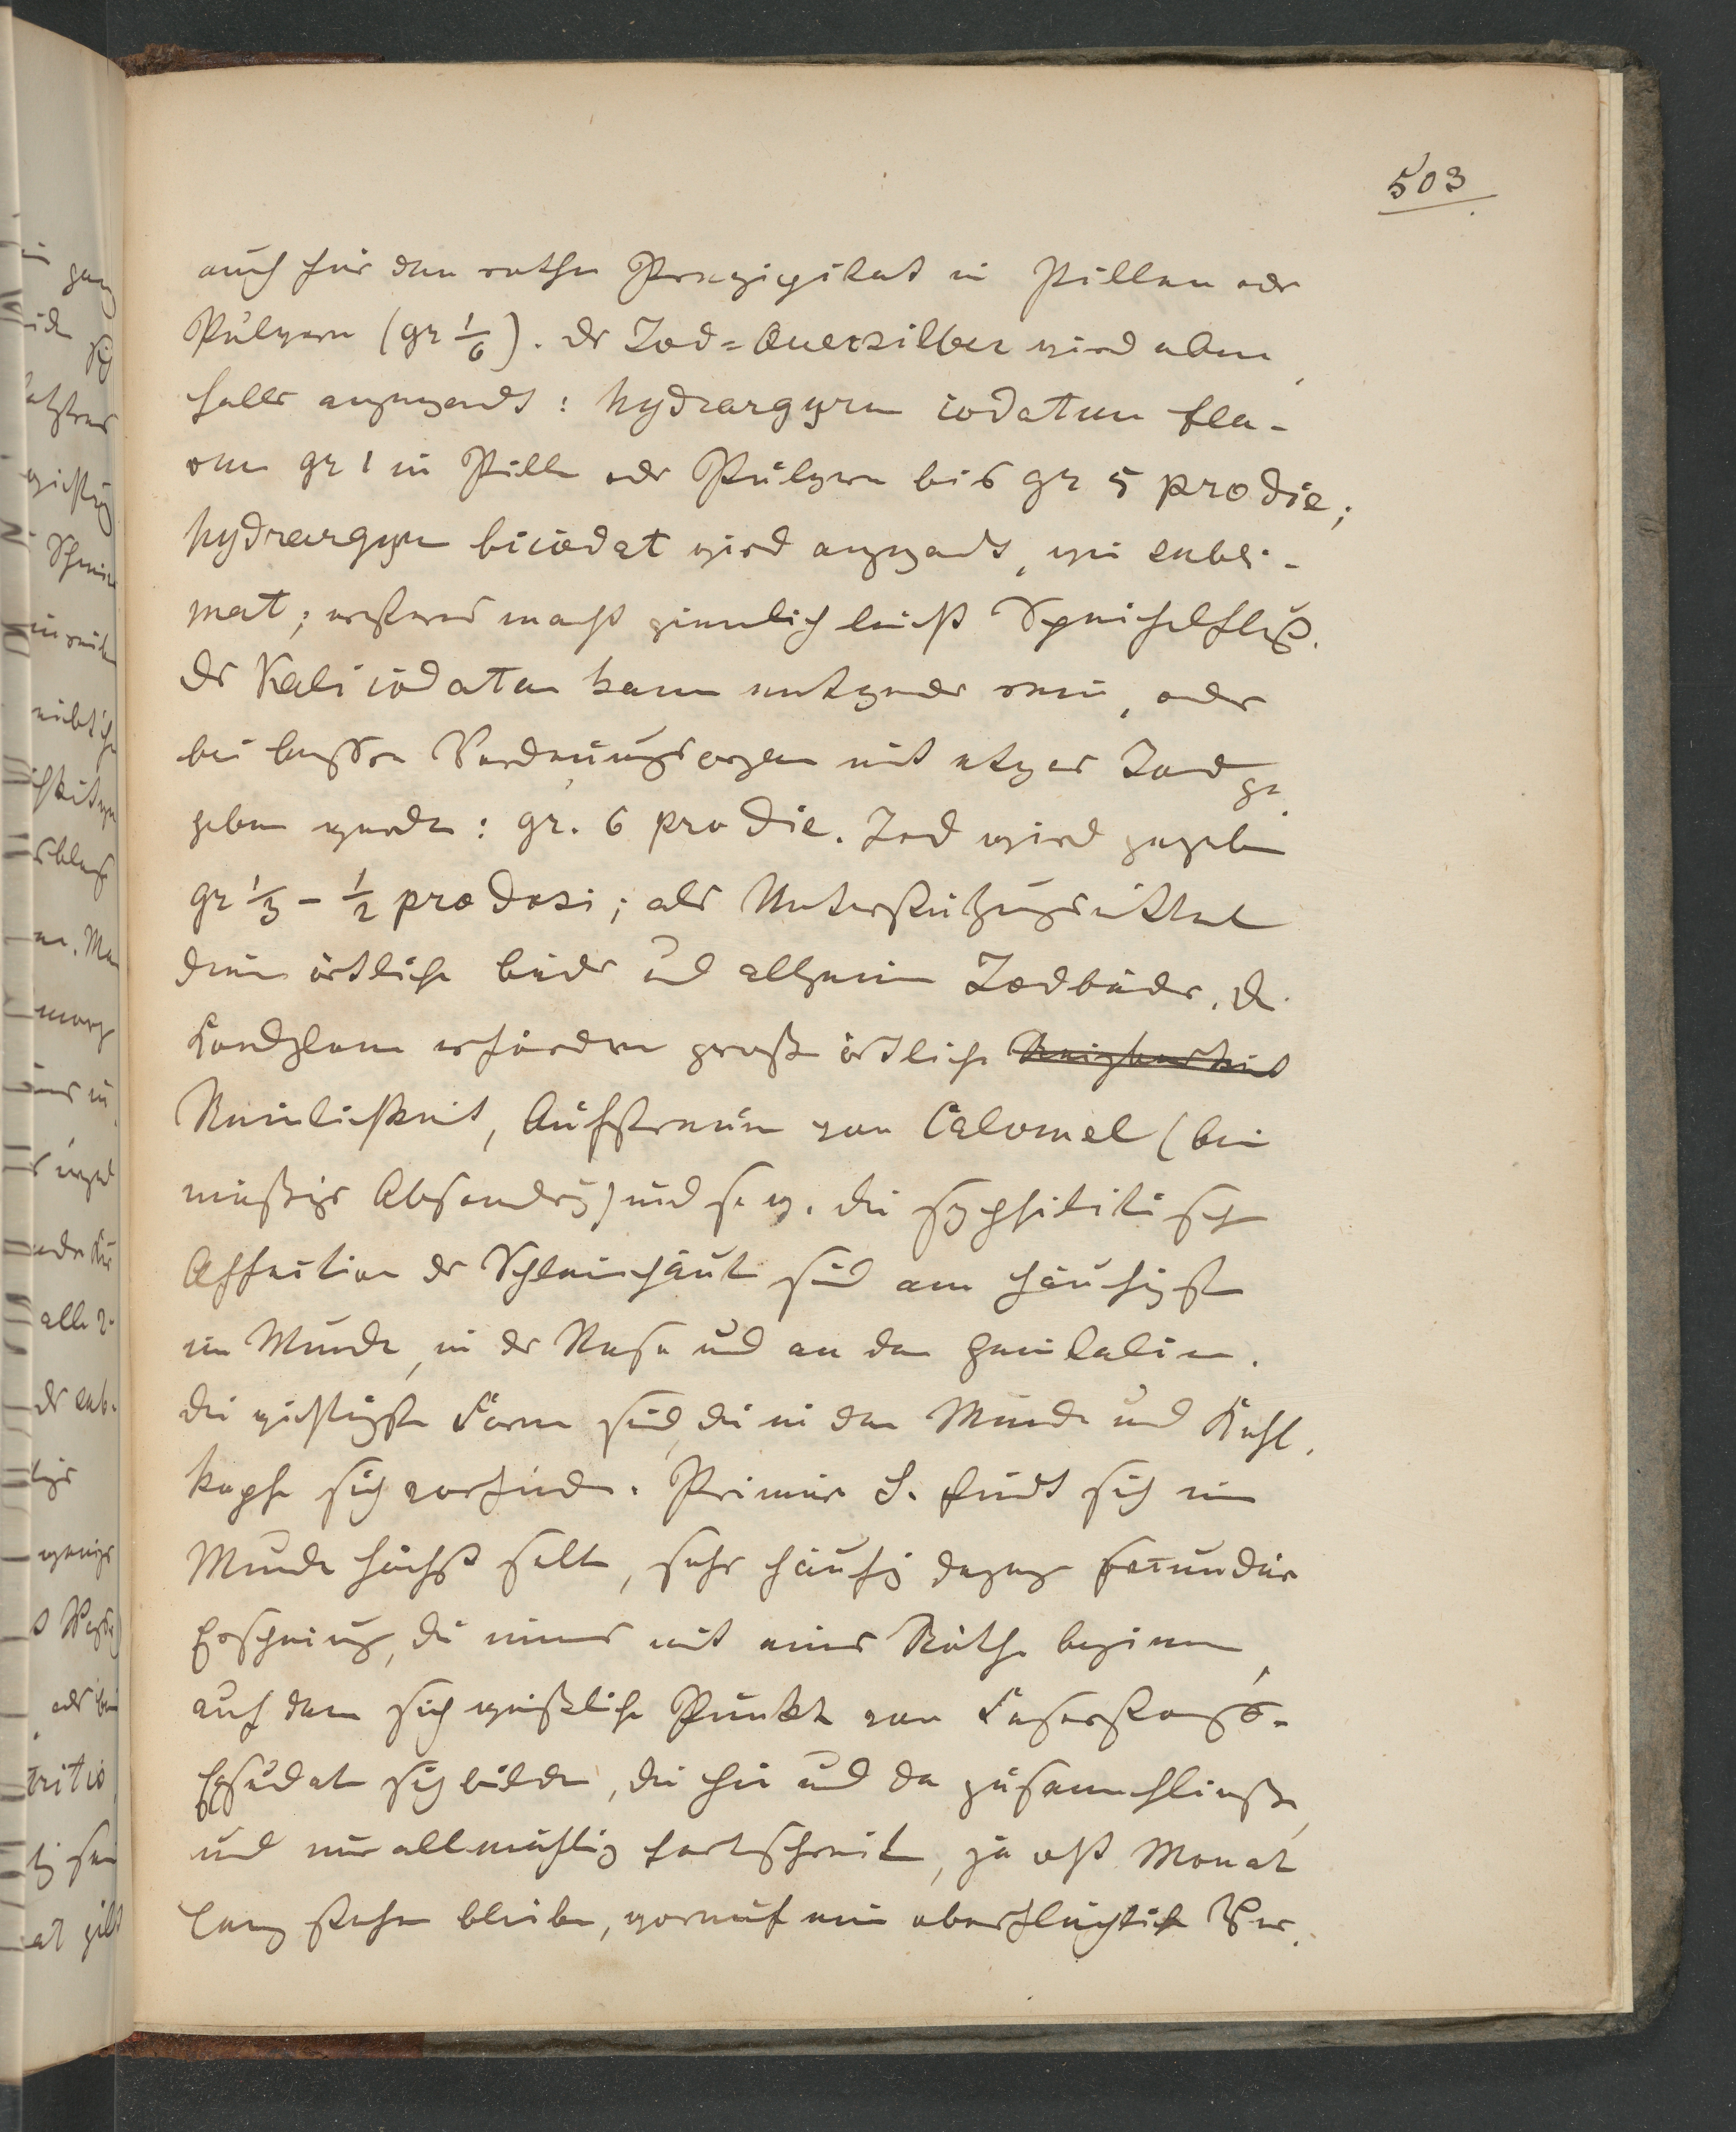 503
auch für den rothen Præzipitat in Pillen oder
Pulvern (gr 1/6). Der Jod=Quecksilber wird eben
falls angewendt: hydrargyrum iodatum fla-
vum gr 1 in Pill oder Pulvern bis gr 5 pro die;
hydrargyr biiodat wird angewendt, wie subli-
mat; ersteres macht ziemlich leicht Speichelfluß.
Der Kali iodatum kann entweder rein, oder
bei bessern Verdauungsorganen mit etwas Jod ge
geben werden: gr. 6 pro die. Jod wird gegeben
gr 1/3 - 1/2 pro dosi; als Unterstützungsmittel
dienen örtliche bäder und allgemein Jodbäder. D.
Kondylome erfordern große örtliche Reizbarkeit
Reinlichkeit, Aufstreuen von Calomel (bei
mäßiger Absonderung) und s. w. die syphilitisch
Affection der Schleimhäute sind am häufigst
im Munde, in der Nase und an den Genitalien.
die wichtigste Form sind, die in dem Munde und Kehl
kopfe sich vorfinden. Primär S. findt sich im
Munde höchst selten, sehr häufig dagegen secundäre
Erscheinung, die immer mit einer Röthe beginnen,
auf dem sich weißliche Punkte von Faserstoffs-
Exsudat sich bilden, die hie und da zusammenfließen,
und nur allmählig fortschreit, ja oft Monat
lang stehen bleiben, worauf ein oberflächlich Ver